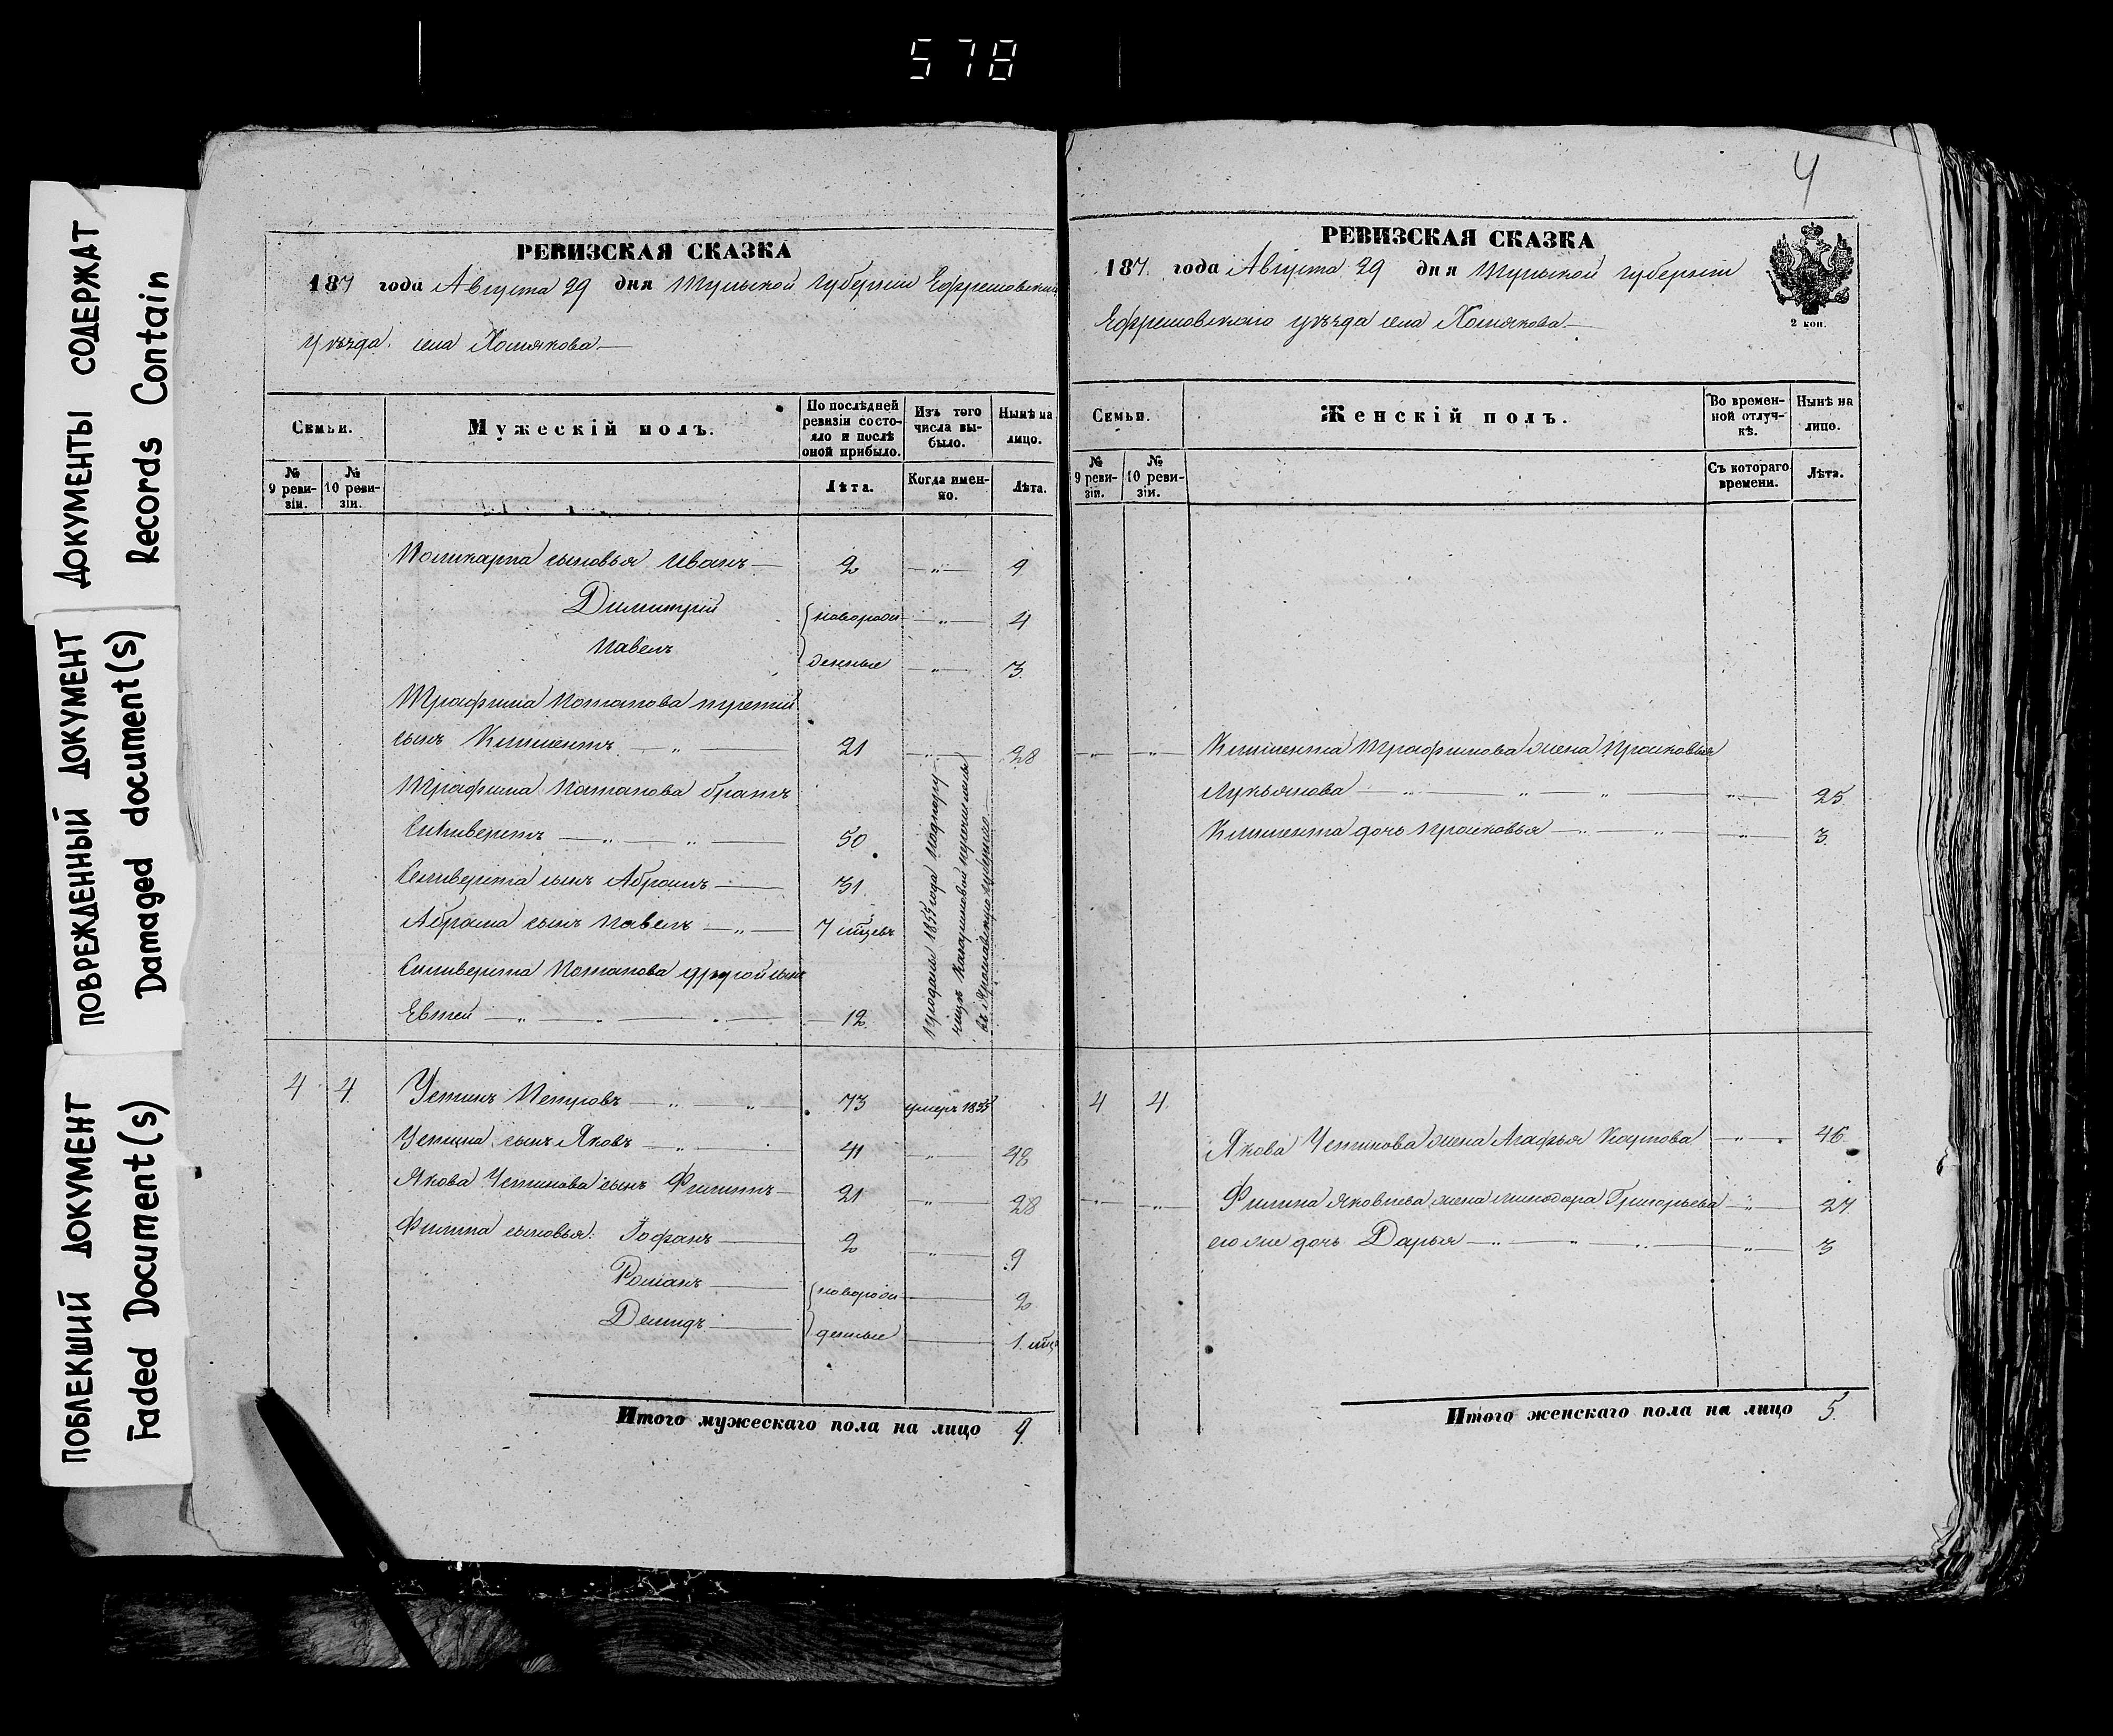 578
ДОКУМЕНТЫ СОДЕРЖАТ
Records Contain
ПОВРЕЖДЕННЫЙ ДОКУМЕНТ
Damaged document(s)
ПОБЛЕКШИЙ ДОКУМЕНТ
Faded Document(s)
РЕВИЗСКАЯ СКАЗКА
187 года Августа 29 дня Тульской Губернiи Ефремовскаго
уѣзда села Хомякова
Семьи.
Мужескiй полъ.
По послѣдней ревизiи состояло и послѣ оной прибыло.
Изъ того числа выбыло.
Нынѣ на лицо.
№ 9 ревизiи.
№ 10 ревизiи.
Лѣта.
Когда именно.
Лѣта.
Поликарпа сыновья Иванъ 2 9
Димитрiй новорож 4
Павелъ денные 3
Трафима Потапова третiй
сынъ Климентъ 21 28
Трафима Потапова братъ
Силиверстъ 50
Селиверста сынъ Абрамъ 31
Абрама сынъ Павелъ 7 мцевъ
Силиверста Потапова другой сынъ
Евтей 12
проданы 1855 года
въ Ярославскую губернiю
4 4 Устинъ Петровъ 73 умеръ 1855
Устина сынъ Яковъ 41 48
Якова Устинова сынъ Филиппъ 21 28
Филипа сыновья: Iофанъ 2 9
Романъ новорож 2
Демидъ денные 1 мца
Итого мужескаго пола на лицо 9.
4
РЕВИЗСКАЯ СКАЗКА
187 года Августа 29 дня Тульской губернiи
Ефремовскаго уѣзда села Хомякова
2 коп.
Семьи.
Женскiй полъ.
Во временной отлучкѣ.
Нынѣ на лицо.
№ 9 ревизiи.
№ 10 ревизiи.
Съ котораго времени.
Лѣта.
Климента Трафимова жена Прасковья
Лукьянова 25
Климента дочь Прасковья 3
4 4
Якова Устинова жена Агафья Карпова 46
Филипа Яковлева жена Минодора Григорьева 27
его же дочь Дарья 3
Итого женскаго пола на лицо 5.